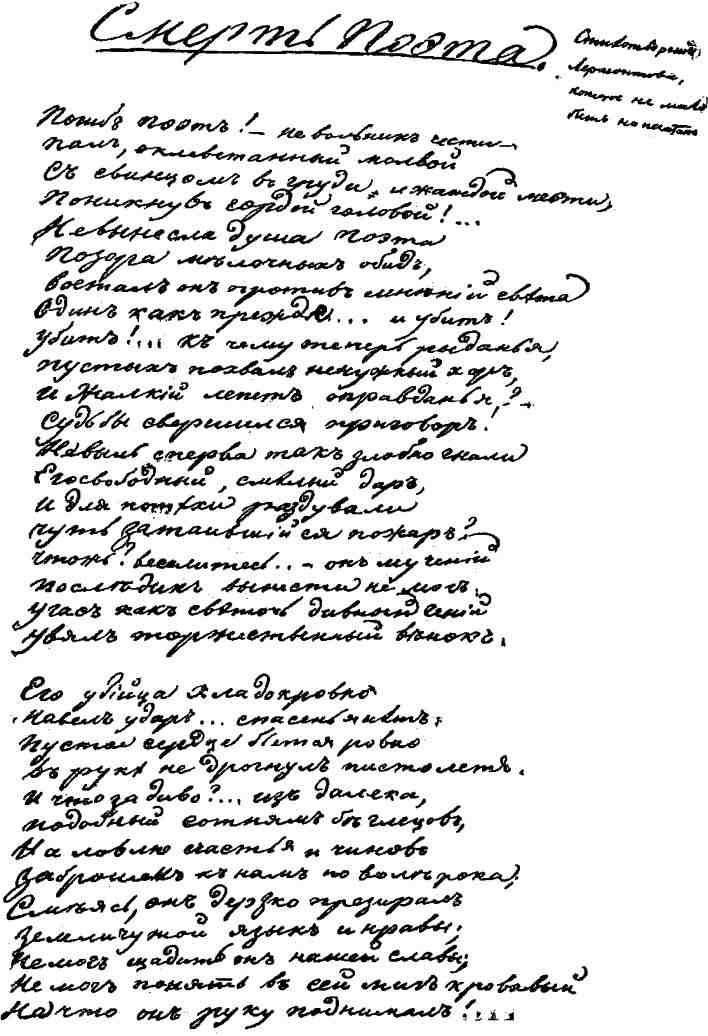 Смерть Поэта.
Стихотвореніе
Лермонтова,
которое не могло
быть напечатано
Погибъ поэтъ! – невольникъ чести –
палъ, оклеветанный молвой
Съ свинцомъ въ груди, и жаждой мести,
Поникнувъ гордой головой!...
Невынесла душа поэта
Позора мѣлочныхъ обидъ,
возсталъ онъ противъ мнѣній свѣта
Одинъ какъ прежде... и убитъ!
убитъ!... къ чему теперь рыданья,
пустыхъ похвалъ ненужный хоръ,
и жалкій лепетъ оправданья,? –
судьбы свершился приговоръ!
Не вы ль сперва такъ злобно гнали
Его свободный, смѣлый даръ,
и для потѣхи раздували
чуть затаившійся пожаръ?
чтожъ? веселитесь.. – онъ мученій
послѣднихъ вынести не могъ:
угасъ какъ свѣточь дивный геній
увялъ торжественный вѣнокъ.
Его убійца хладокровно
навелъ ударъ... спасенья нѣтъ:
пустое сердце бьется ровно
въ рукѣ не дрогнулъ пистолетъ.
и что за диво?... изъ далека,
подобный сотнямъ бѣглецовъ,
На ловлю счастья и чиновъ
заброшенъ къ намъ по волѣ рока;
Смѣясь, онъ дерзко презиралъ
земли чужой языкъ и нравы;
не могъ щадить онъ нашей славы;
не могъ понять въ сей мигъ кровавый
На что онъ руку поднималъ!....